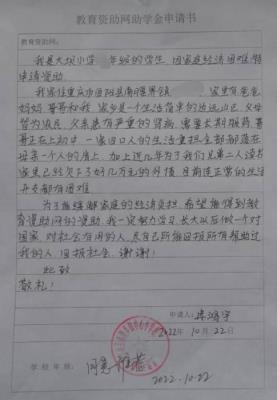 教育资助网助学金申请书
教育资助网:
我是大坝小学 年级的学生,因家庭经济困难,特
申请资助。
我家住重庆市酉阳县南腰界镇 家里有爸爸
妈妈哥哥和我,家乡是一个生活苦寒的边远山区,父母
皆为农民,父亲患有严重的肾病,需要长期服药,哥
哥正在上初中,一家四口人的生活重担全部都落在
母亲一个人的身上,加上近几年为了我们兄弟二人读书
家里已经欠下了好几万元的外债,目前连正常的生活
开支都有困难
为了能缓解家庭的经济负担,希望能得到教
育资助网的资助,我一定努力学习,长大以后做一个对
国家,对社会有用的人,尽自己所能回报所有帮助过
我的人,回报社会,谢谢!
此致
敬礼!
申请人:
2022年10月22日
学校审核: 同意
2022.10.22